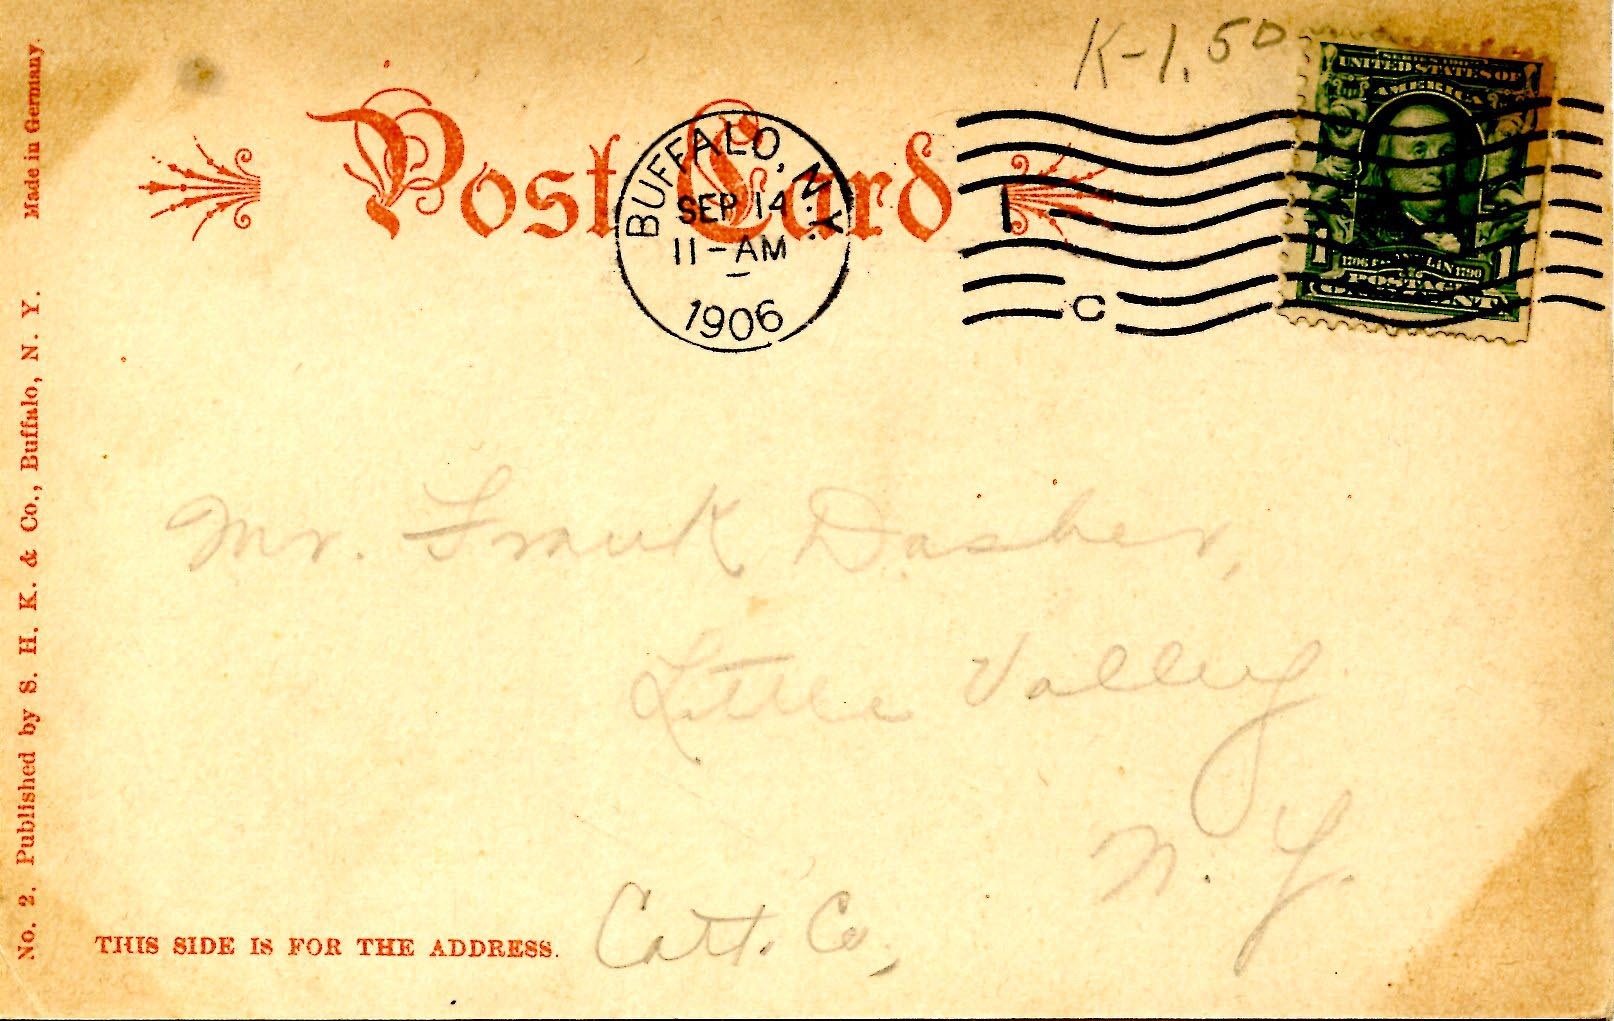 K-1.50
Post Card
BUFFALO, N.Y.
SEP 14
11-AM
1906
1
C
UNITED STATES OF
AMERICA
1706 FRANKLIN 1790
1 1
POSTAGE
ONE CENT
Mr. Frank Dasher,
Little Valley
N. Y.
Catt. Co,
THIS SIDE IS FOR THE ADDRESS.
No. 2. Published by S. H. K. & Co., Buffalo, N. Y. Made in Germany.